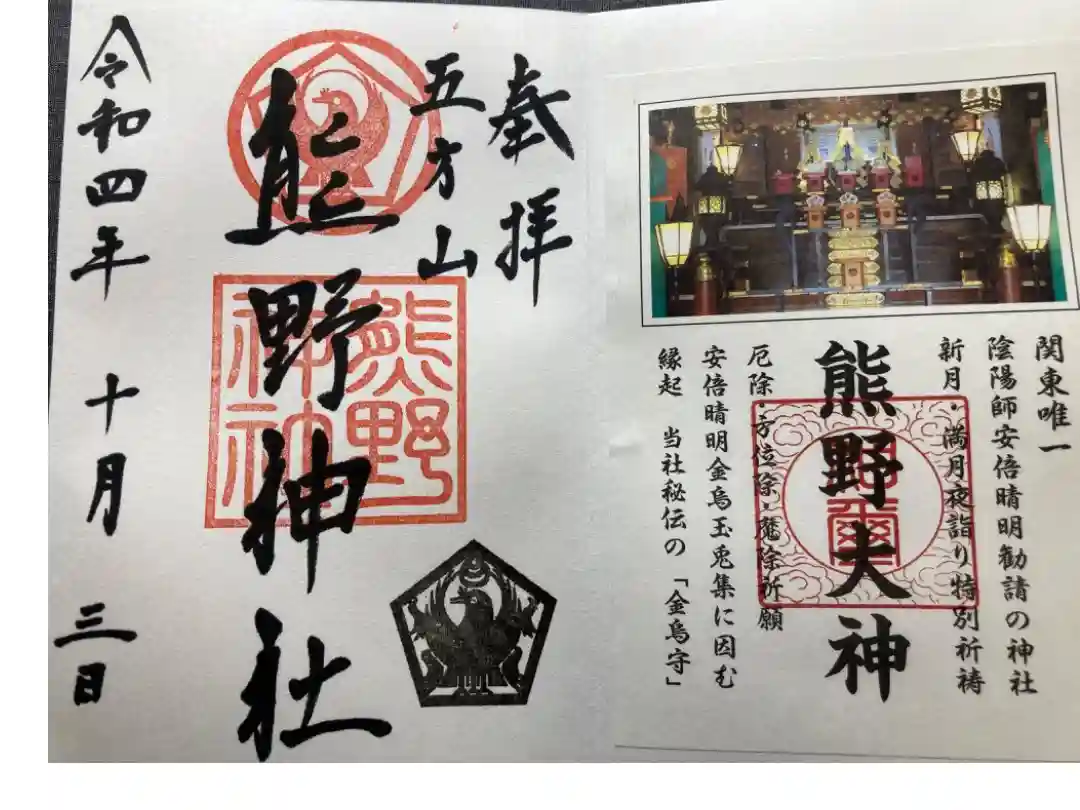 関東唯一
陰陽師安倍晴明勧請の神社
新月・満月夜詣り特別祈祷
熊野大神
厄除・方位除・魔除祈願
安倍晴明金烏玉兎集に因む
縁起　当社秘伝の「金烏守」
奉拝
五方山
熊野神社
熊野
神社
令和四年 十月 三日